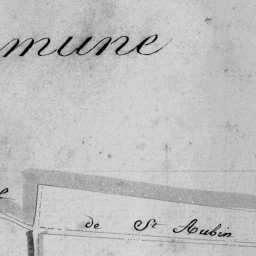 mune
de St Aubin